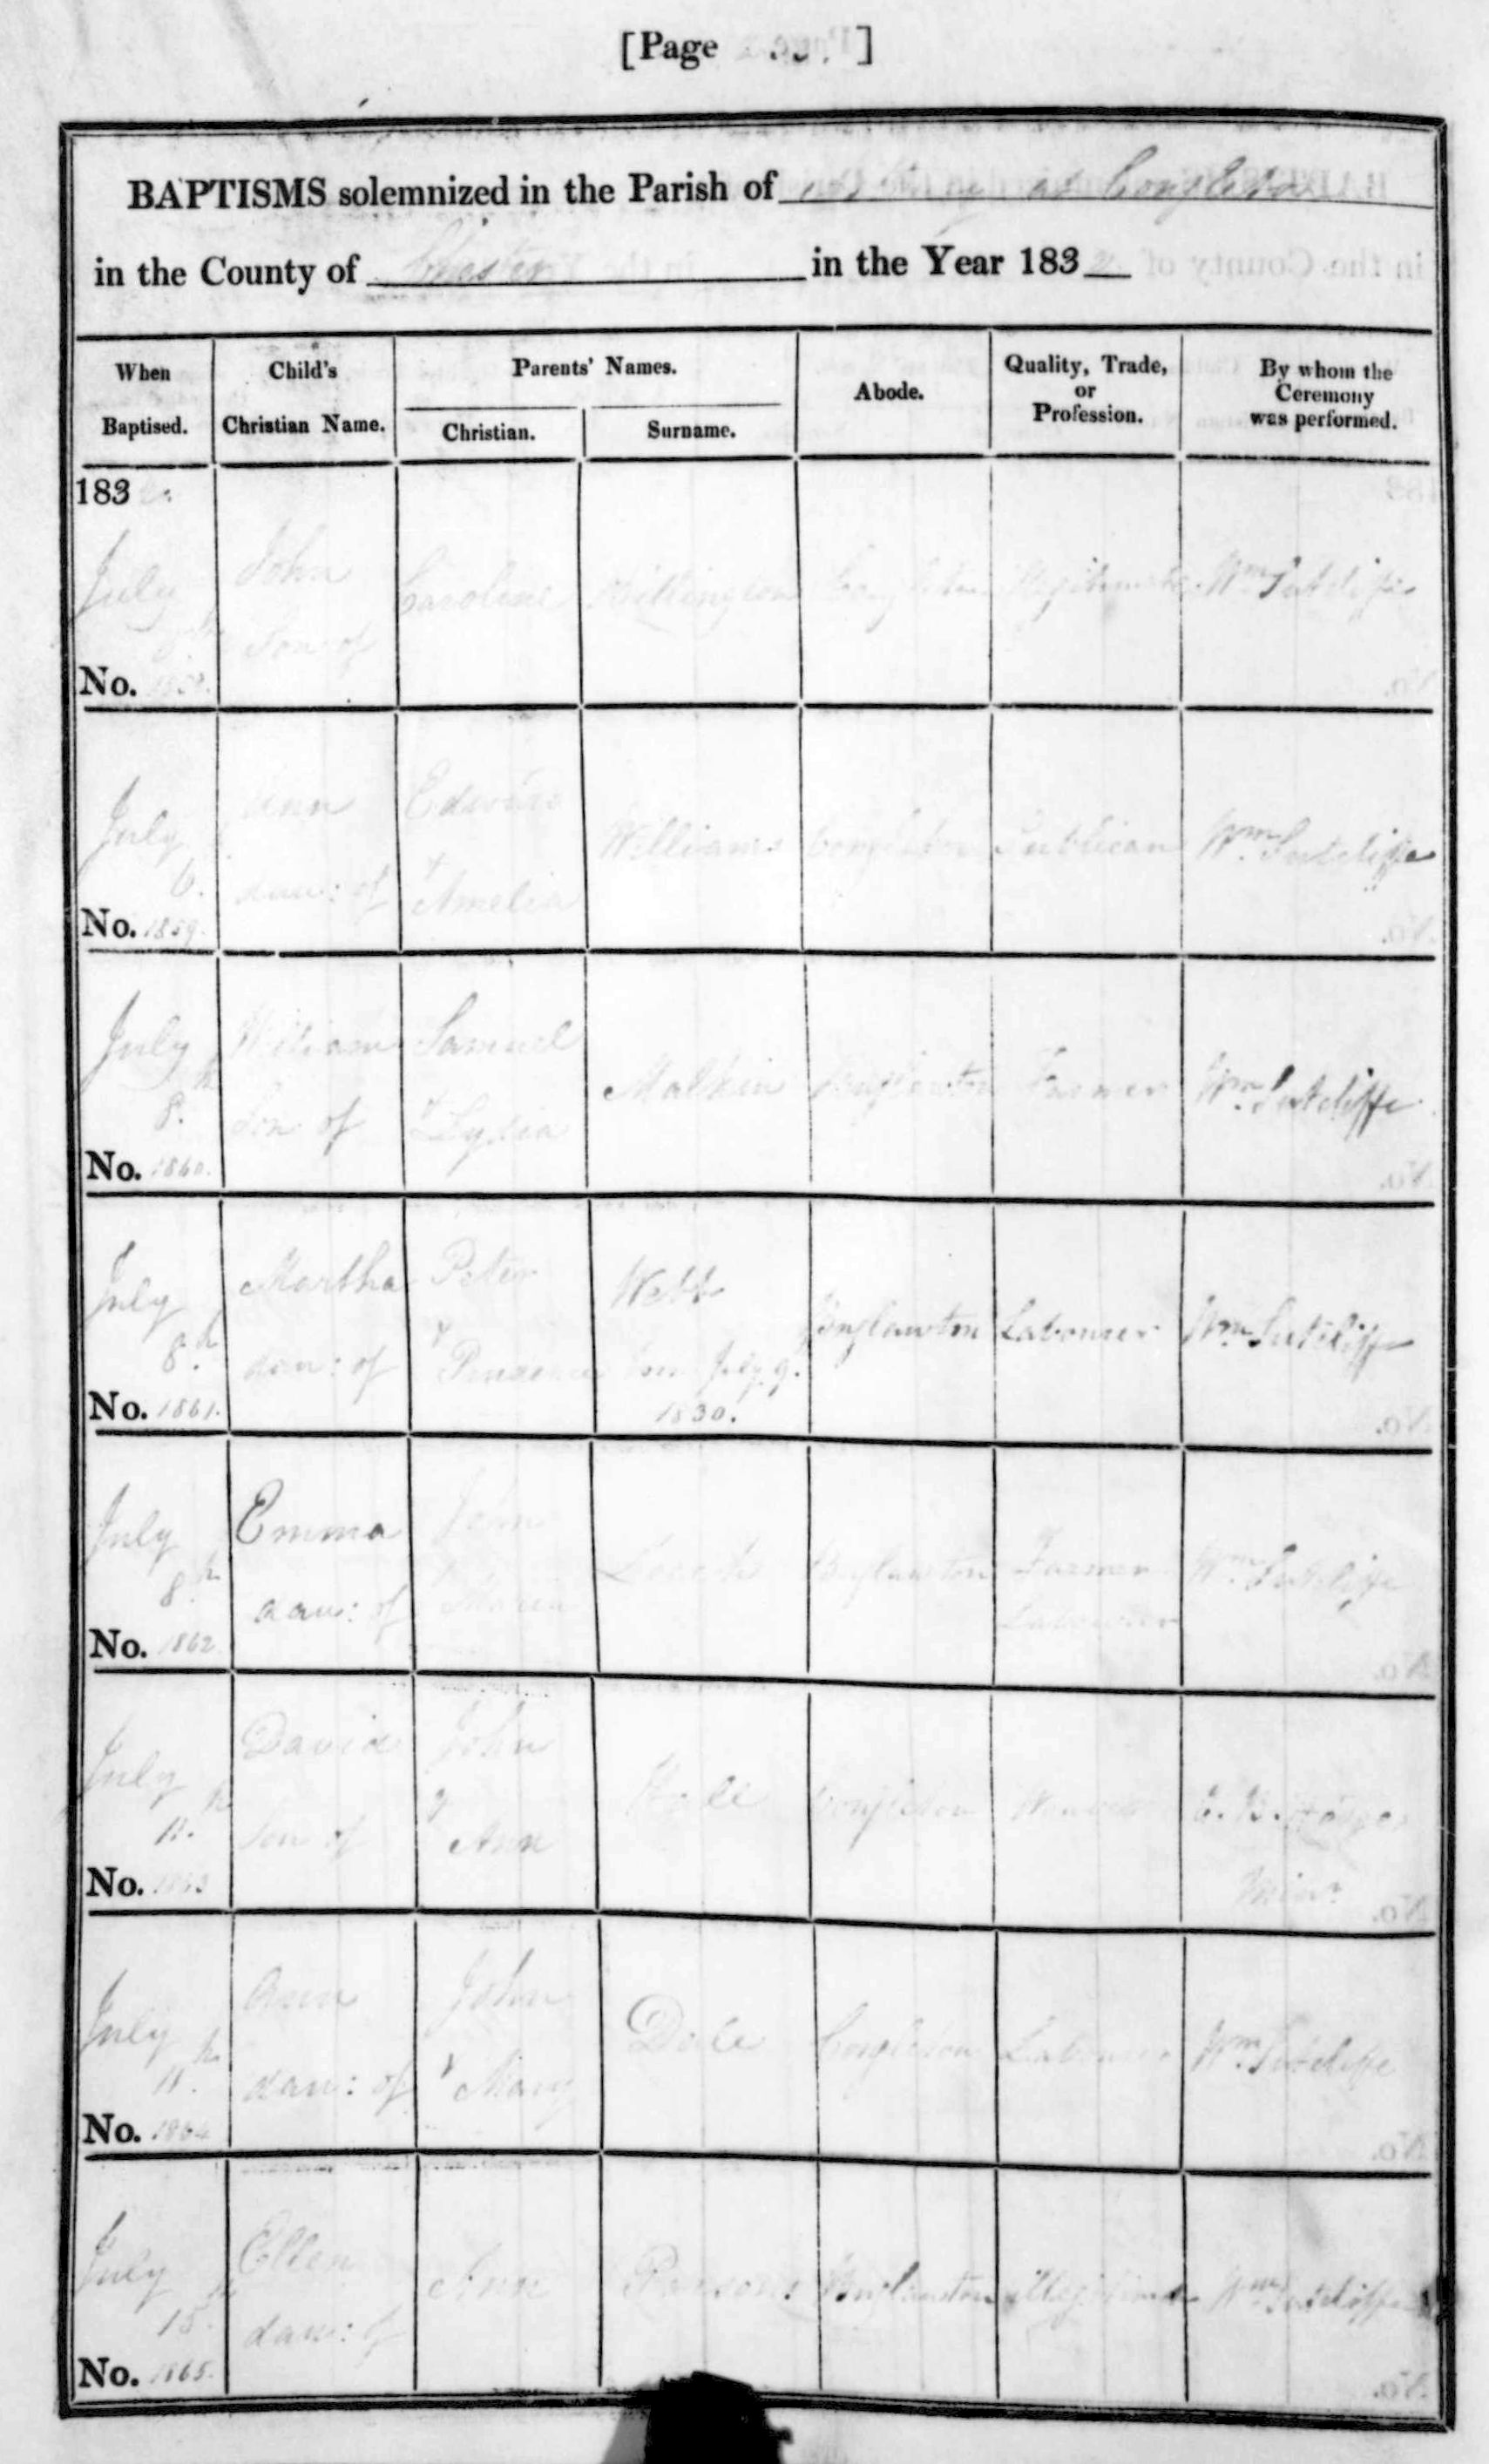 [Page ]
BAPTISMS solemnized in the Parish of at Congleton
in the County of Chester in the Year 1832
When Baptised.
Child's Christian Name.
Parents' Names.
Christian.
Surname.
Abode.
Quality, Trade, or Profession.
By whom the Ceremony was performed.
183
July
John
Son of
Caroline
Congleton
Illegitimate
Wm Sutcliffe
No.
July 6.
Ann
dau: of
Edward
& Amelia
Williams
Congleton
Publican
Wm Sutcliffe
No. 1859.
July 8th
William
Son of
Samuel
& Lydia
Malkin
Buglawton
Farmer
Wm Sutcliffe
No. 1860.
July 8th
Martha
dau: of
Peter
& Prudence
Webb
born July 9.
1830.
Buglawton
Labourer
Wm Sutcliffe
No. 1861.
July 8th
Emma
dau: of
John
& Maria
Buglawton
Farmer
Labourer
Wm Sutcliffe
No. 1862
July 11th
David
Son of
John
& Ann
Hall
Congleton
Weaver
Minr
No. 1863
July 11th
Ann
dau: of
John
& Mary
Dale
Congleton
Labourer
Wm Sutcliffe
No. 1864
July 15th
Ellen
dau: of
Ann
Parsons
Buglawton
illegitimate
Wm Sutcliffe
No. 1865.